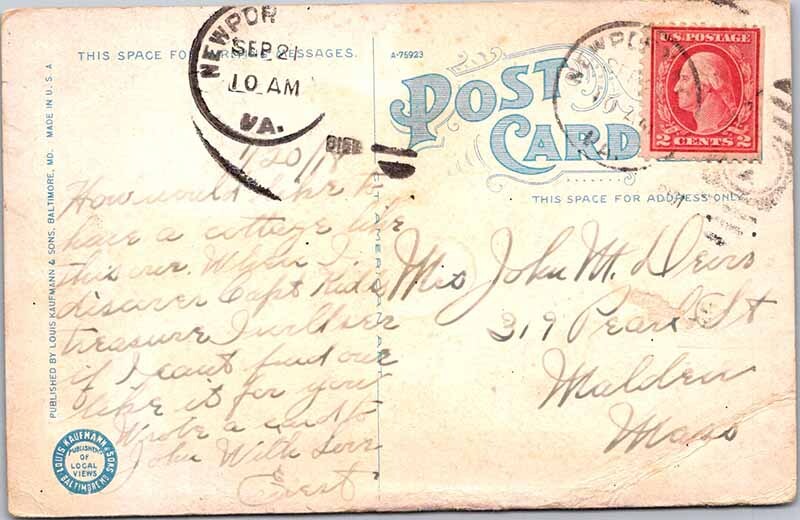 THIS SPACE FOR WRITING MESSAGES.
NEWPOR
SEP 21
10 AM
VA.
1918
A-75923
POST
CARD
U.S. POSTAGE
2 CENTS 2
NEWPOR
THIS SPACE FOR ADDRESS ONLY.
PUBLISHED BY LOUIS KAUFMANN & SONS, BALTIMORE, MD. MADE IN U.S.A
9/20/18
How would like to
have a cottage like
this one. When I
discover Capt Kids
treasure I will see
if I cant find one
like it for you
Wrote a card to
John With Love
Ernest
Mrs John M.
319 Pearl St
Malden
Mass
LOUIS KAUFMANN & SONS
PUBLISHERS
OF
LOCAL
VIEWS
BALTIMORE MD.